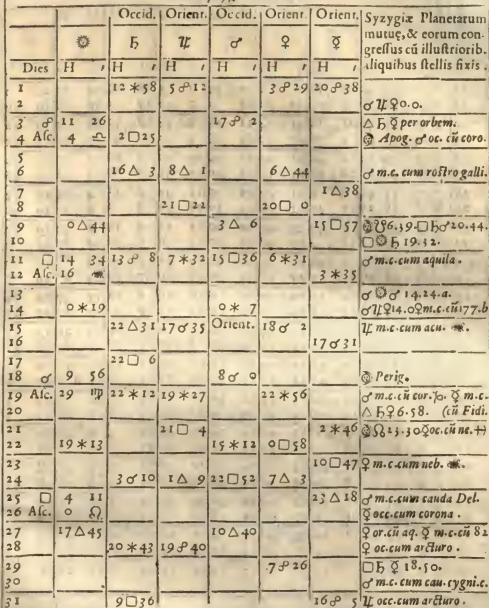 Occid. Orient. Occid. Orient. Orient. Syzygiæ Planetarum
☼ ♄ ♃ ♂ ♀ ☿ mutuę, & eorum con-
gressus cū illustriorib.
Dies H ′ H ′ H ′ H ′ H ′ H ′ aliquibus stellis fixis.
1 12⚹58 5☍12 3☍29 20☍38
2 ☌♃♀0.0.
3 ☍ 11 26 17☍ 2 △♄☿ per orbem.
4 Asc. 4 ♎ 2□25 Apog. ♂ oc. cū coro.
5
6 16△ 3 8△ 1 6△44 ♂ m.c. cum rostro galli.
7 1△38
8 21□22 20□ 0
9 0△44 3△ 6 15□57 6.39.□♄♂20.44.
10 □☼♄ 19.32.
11 □ 14 34 13☍ 8 7⚹32 15□36 6⚹31 ♂ m.c. cum aquila.
12 Asc. 16 ♏ 3⚹35
13 ☌☼♂ 14.24.a.
14 0⚹19 0⚹ 7 ☌♃♀14.0♀m.c.cū177.b
15 22△31 17☌35 Orient. 18☌ 2 ♃ m.c. cum acu. ♏.
16 17☌31
17 22□ 6
18 ☌ 9 56 8☌ 0 Perig.
19 Asc. 29 ♍ 22⚹12 19⚹27 22⚹56 ♂ m.c. cū cor. ♑. ☿ m.c.
20 △♄♀6.58. (cū Fidi.
21 21□ 4 2⚹46 ☊23.30♀oc. cū ne. ♐
22 19⚹13 15⚹12 0□58
23 10□47 ♀ m.c. cum neb. ♏.
24 3☌10 1△ 9 22□52 7△ 3
25 □ 4 11 23△18 ♂ m.c. cum cauda Del.
26 Asc. 0 ♌ ☿ occ. cum corona.
27 17△45 10△40 ♀ or. cū aq. ☿ m.c. cū 82
28 20⚹43 19☍40 ♀ oc. cum arcturo.
29 7☍26 □♄☿ 18.50.
30 ♂ m.c. cum cau. cygni.c.
31 9□36 16☍ 5 ♃ occ. cum arcturo.